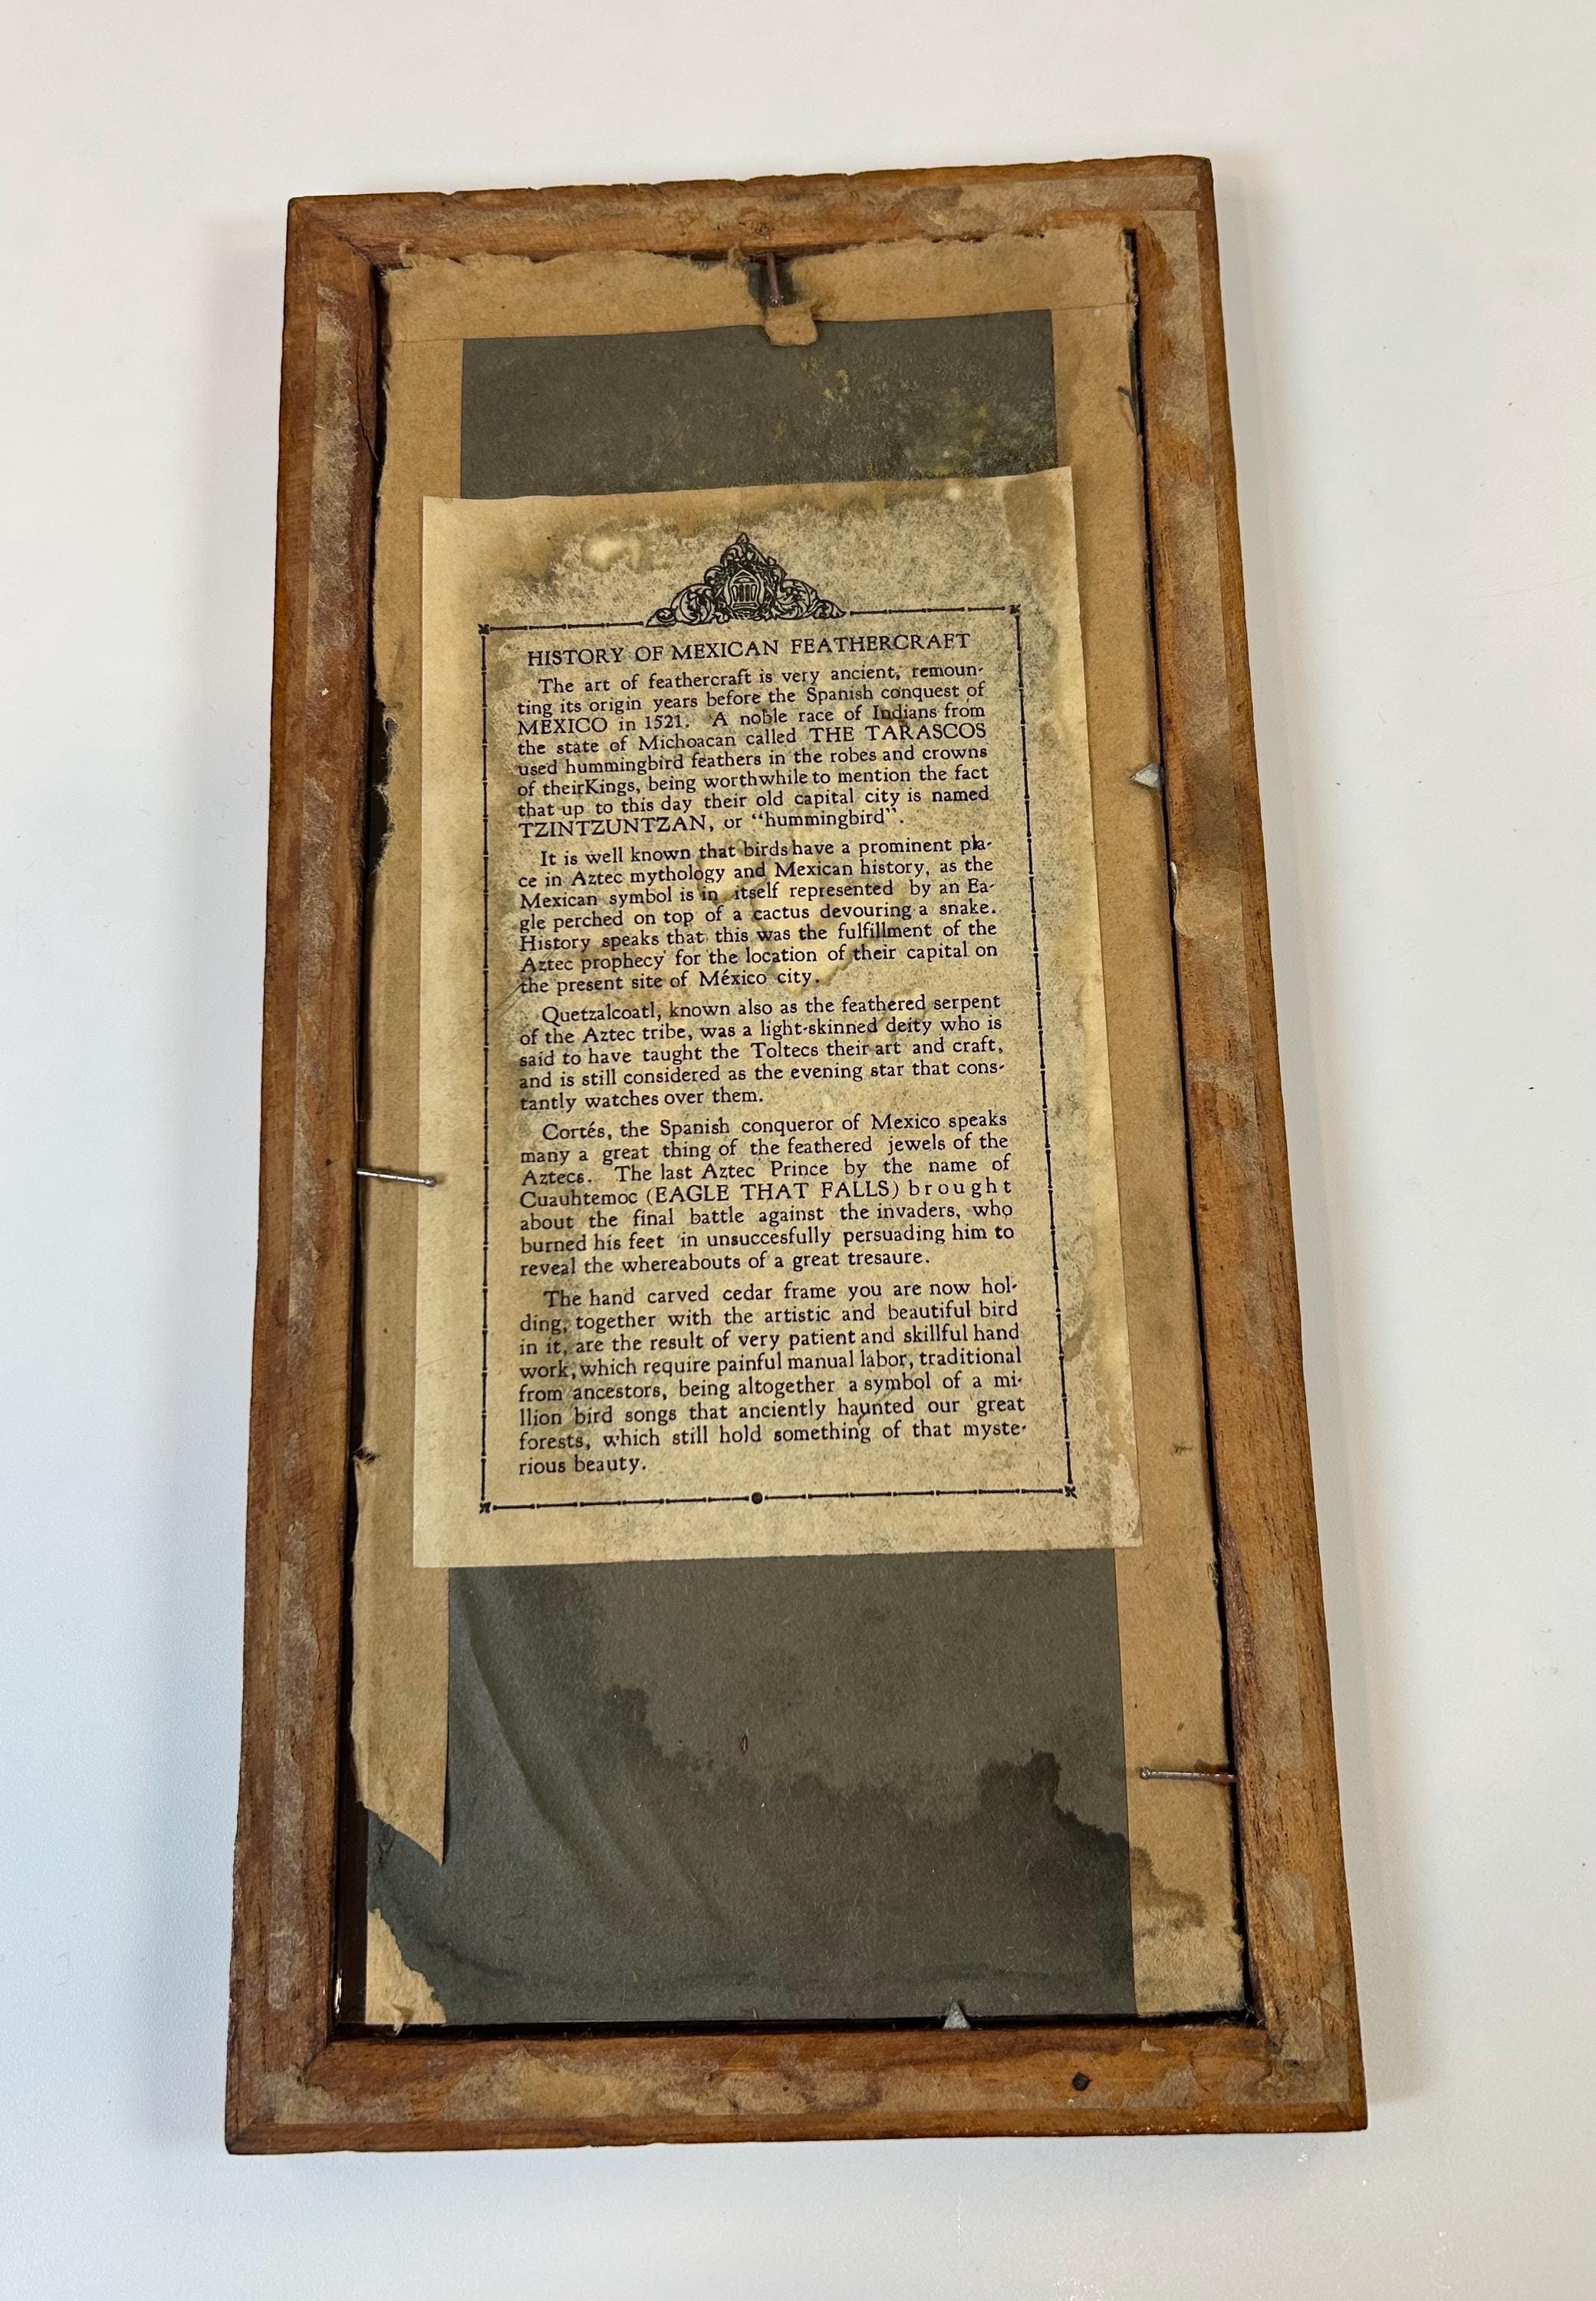 HISTORY OF MEXICAN FEATHERCRAFT
The art of feathercraft is very ancient, remoun-
ting its origin years before the Spanish conquest of
MEXICO in 1521. A noble race of Indians from
the state of Michoacan called THE TARASCOS
used hummingbird feathers in the robes and crowns
of theirKings, being worthwhile to mention the fact
that up to this day their old capital city is named
TZINTZUNTZAN, or “hummingbird”.
It is well known that birds have a prominent pla-
ce in Aztec mythology and Mexican history, as the
Mexican symbol is in itself represented by an Ea-
gle perched on top of a cactus devouring a snake.
History speaks that this was the fulfillment of the
Aztec prophecy for the location of their capital on
the present site of México city.
Quetzalcoatl, known also as the feathered serpent
of the Aztec tribe, was a light-skinned deity who is
said to have taught the Toltecs their art and craft,
and is still considered as the evening star that cons-
tantly watches over them.
Cortés, the Spanish conqueror of Mexico speaks
many a great thing of the feathered jewels of the
Aztecs. The last Aztec Prince by the name of
Cuauhtemoc (EAGLE THAT FALLS) brought
about the final battle against the invaders, who
burned his feet in unsuccesfully persuading him to
reveal the whereabouts of a great tresaure.
The hand carved cedar frame you are now hol-
ding, together with the artistic and beautiful bird
in it, are the result of very patient and skillful hand
work, which require painful manual labor, traditional
from ancestors, being altogether a symbol of a mi-
llion bird songs that anciently haunted our great
forests, which still hold something of that myste-
rious beauty.